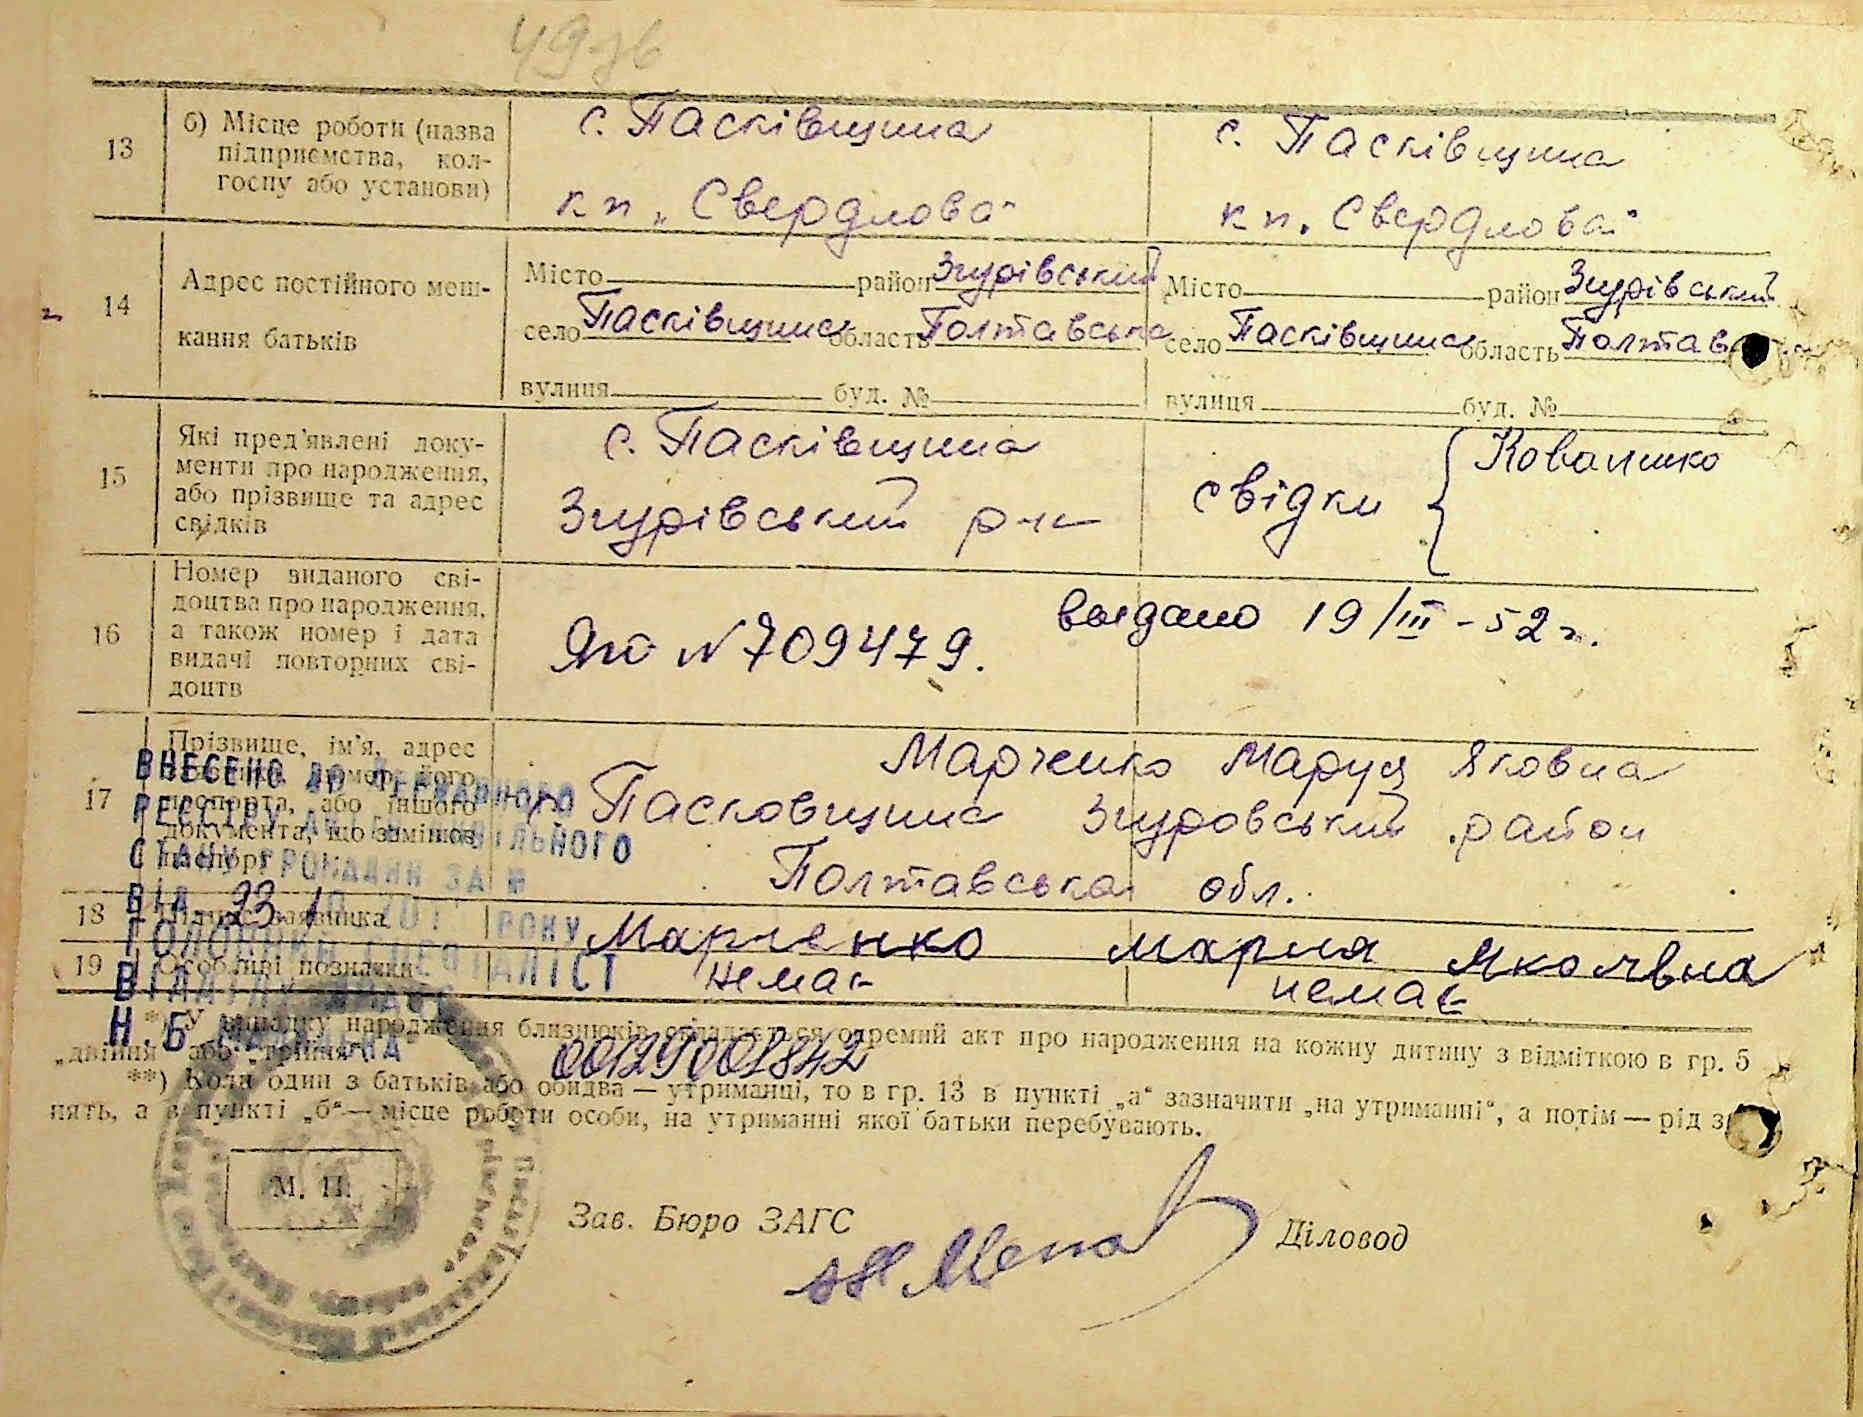 13
б) Місце роботи (назва
підприємства, кол-
госпу або установи)
с. Пасківщина
кп „Свердлова"
с. Пасківщина
кп „Свердлова"
14
Адрес постійного меш-
кання батьків
Місто район Згурівський
село Пасківщина область Полтавська
вулиця буд. №
Місто район Згурівський
село Пасківщина область Полтав
вулиця буд. №
15
Які пред'явлені доку-
менти про народження,
або прізвище та адрес
свідків
с. Пасківщина
Згурівський р-н
свідки
16
Номер виданого сві-
доцтва про народження,
а також номер і дата
видачі повторних сві-
доцтв
№ 709479.
выдано 19/III-52 г.
17
Прізвище, ім'я, адрес
номер його
паспорта, або іншого
документа, що замінює
паспорт
Марченко Маруся Яковна
Пасковщина Згуровський район
Полтавська обл.
ВНЕСЕНО ДО ДЕРЖАВНОГО
РЕЄСТРУ АКТІВ ЦИВІЛЬНОГО
СТАНУ ГРОМАДЯН ЗА №
ВІД 23 РОКУ
ГОЛОВНИЙ СПЕЦІАЛІСТ
Н.Б.
18
Підпис заявника
Марченко Мария Яковлвна
19
Особливі позначки
немає
немає
*) У випадку народження близнюків складається окремий акт про народження на кожну дитину з відміткою в гр. 5
„двійня" або „трійня".
00129002842
**) Коли один з батьків або обидва — утриманці, то в гр. 13 в пункті „а" зазначити „на утриманні", а потім — рід з
нять, а в пункті „б" — місце роботи особи, на утриманні якої батьки перебувають.
М. П.
Зав. Бюро ЗАГС
Діловод